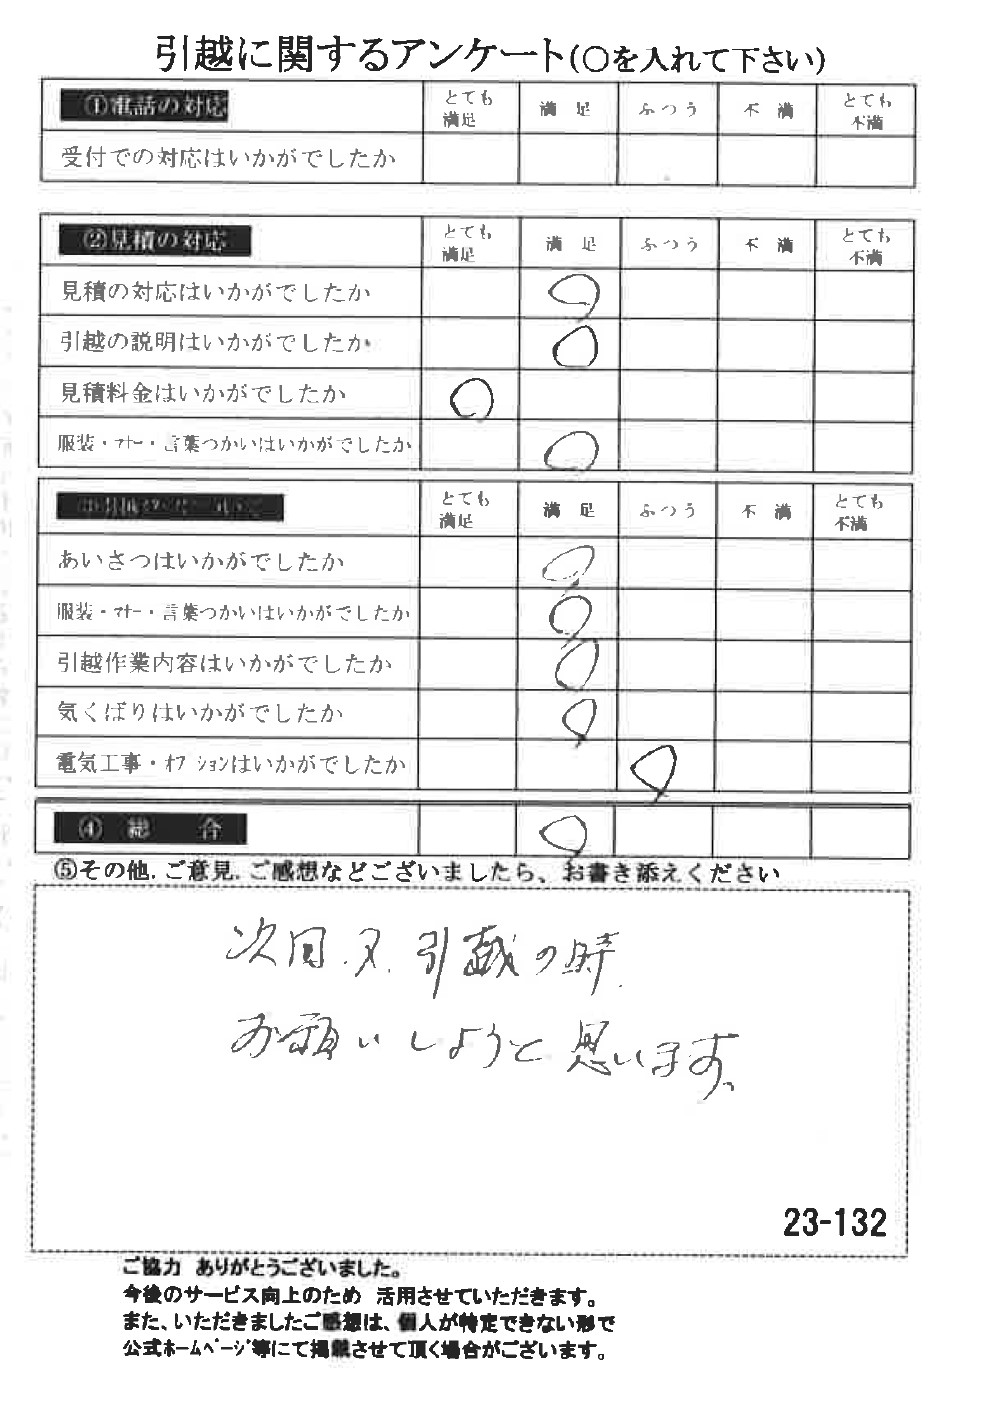 引越に関するアンケート(〇を入れて下さい)
①電話の対応 とても満足 満足 ふつう 不満 とても不満
受付での対応はいかがでしたか
②見積の対応 とても満足 満足 ふつう 不満 とても不満
見積の対応はいかがでしたか
引越の説明はいかがでしたか
見積料金はいかがでしたか
服装・マナー・言葉つかいはいかがでしたか
とても満足 満足 ふつう 不満 とても不満
あいさつはいかがでしたか
服装・マナー・言葉つかいはいかがでしたか
引越作業内容はいかがでしたか
気くばりはいかがでしたか
電気工事・オプションはいかがでしたか
④ 総合
⑤その他、ご意見、ご感想などございましたら、お書き添えください
次回、又、引越の時
お願いしようと思います。
23-132
ご協力 ありがとうございました。
今後のサービス向上のため 活用させていただきます。
また、いただきましたご感想は、個人が特定できない形で
公式ホームページ等にて掲載させて頂く場合がございます。